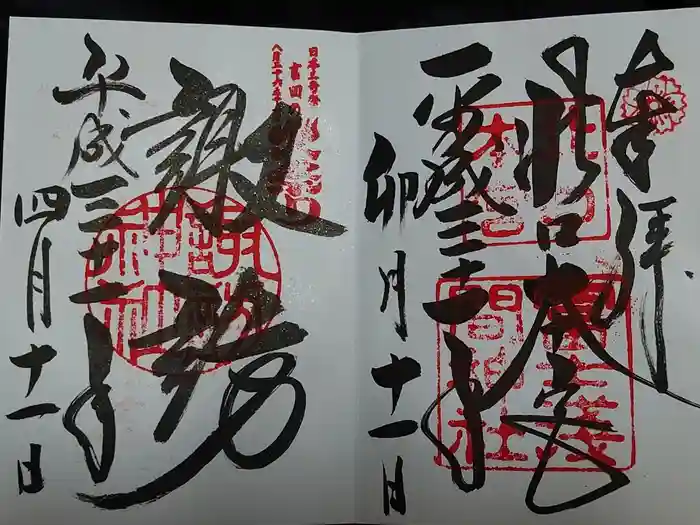 奉拝
北口本宮
冨士浅間神社
平成三十一年
卯月十一日
日本三奇祭
吉田の火まつり
諏訪
諏訪神社
平成三十一年
四月十一日